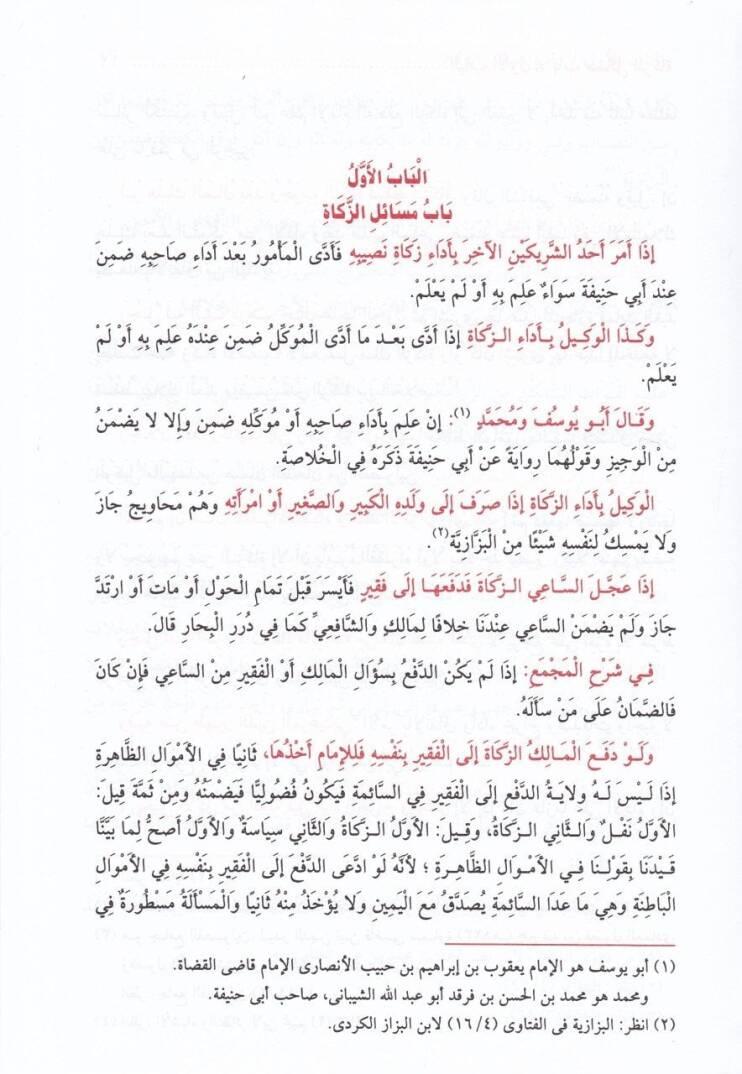 الْبَابُ الأَوَّلُ
بَابُ مَسَائِلِ الزَّكَاةِ
إِذَا أَمَرَ أَحَدُ الشَّرِيكَيْنِ الآخِرَ بِأَدَاءِ زَكَاةِ نَصِيبِهِ فَأَدَّى الْمَأْمُورُ بَعْدَ أَدَاءِ صَاحِبِهِ ضَمِنَ
عِنْدَ أَبِي حَنِيفَةَ سَوَاءٌ عَلِمَ بِهِ أَوْ لَمْ يَعْلَمْ.
وَكَذَا الْوَكِيلُ بِأَدَاءِ الزَّكَاةِ إِذَا أَدَّى بَعْدَ مَا أَدَّى الْمُوَكِّلُ ضَمِنَ عِنْدَهُ عَلِمَ بِهِ أَوْ لَمْ
يَعْلَمْ.
وَقَالَ أَبُو يُوسُفَ وَمُحَمَّدٍ (١): إِنْ عَلِمَ بِأَدَاءِ صَاحِبِهِ أَوْ مُوَكِّلِهِ ضَمِنَ وَإِلا لا يَضْمَنُ
مِنْ الْوَجِيزِ وَقَوْلُهُمَا رِوَايَةٌ عَنْ أَبِي حَنِيفَةَ ذَكَرَهُ فِي الْخُلاصَةِ.
الْوَكِيلُ بِأَدَاءِ الزَّكَاةِ إِذَا صَرَفَ إِلَى وَلَدِهِ الْكَبِيرِ وَالصَّغِيرِ أَوْ امْرَأَتِهِ وَهُمْ مَحَاوِيجُ جَازَ
وَلا يَمْسِكُ لِنَفْسِهِ شَيْئًا مِنْ الْبَزَّازِيَّة(٢).
إِذَا عَجَّلَ السَّاعِي الزَّكَاةَ فَدَفَعَهَا إِلَى فَقِيرٍ فَأَيْسَرَ قَبْلَ تَمَامِ الْحَوْلِ أَوْ مَاتَ أَوْ ارْتَدَّ
جَازَ وَلَمْ يَضْمَنْ السَّاعِي عِنْدَنَا خِلافًا لِمَالِكٍ وَالشَّافِعِيِّ كَمَا فِي دُرَرِ الْبِحَارِ قَالَ.
فِي شَرْحِ الْمَجْمَعِ: إِذَا لَمْ يَكُنْ الدَّفْعُ بِسُؤَالِ الْمَالِكِ أَوْ الْفَقِيرِ مِنْ السَّاعِي فَإِنْ كَانَ
فَالضَّمَانُ عَلَى مَنْ سَأَلَهُ.
وَلَوْ دَفَعَ الْمَالِكُ الزَّكَاةَ إِلَى الْفَقِيرِ بِنَفْسِهِ فَلِلإِمَامِ أَخْذُهَا، ثَانِيًا فِي الأَمْوَالِ الظَّاهِرَةِ
إِذَا لَيْسَ لَهُ وِلايَةُ الدَّفْعِ إِلَى الْفَقِيرِ فِي السَّائِمَةِ فَيَكُونُ فُضُولِيًّا فَيَضْمَنُهُ وَمِنْ ثَمَّةَ قِيلَ:
الأَوَّلُ نَفْلٌ وَالثَّانِي الزَّكَاةُ، وَقِيلَ: الأَوَّلُ الزَّكَاةُ وَالثَّانِي سِيَاسَةٌ وَالأَوَّلُ أَصَحُّ لِمَا بَيَّنَّا
قَيَّدَنَا بِقَوْلِنَا فِي الأَمْوَالِ الظَّاهِرَةِ ؛ لأَنَّهُ لَوْ ادَّعَى الدَّفْعَ إِلَى الْفَقِيرِ بِنَفْسِهِ فِي الأَمْوَالِ
الْبَاطِنَةِ وَهِيَ مَا عَدَا السَّائِمَةِ يُصَدَّقُ مَعَ الْيَمِينِ وَلا يُؤْخَذُ مِنْهُ ثَانِيًا وَالْمَسْأَلَةُ مَسْطُورَةٌ فِي
(١) أبو يوسف هو الإمام يعقوب بن إبراهيم بن حبيب الأنصارى الإمام قاضى القضاة.
ومحمد هو محمد بن الحسن بن فرقد أبو عبد الله الشيبانى، صاحب أبى حنيفة.
(٢) انظر: البزازية فى الفتاوى (١٦/٤) لابن البزاز الكردى.